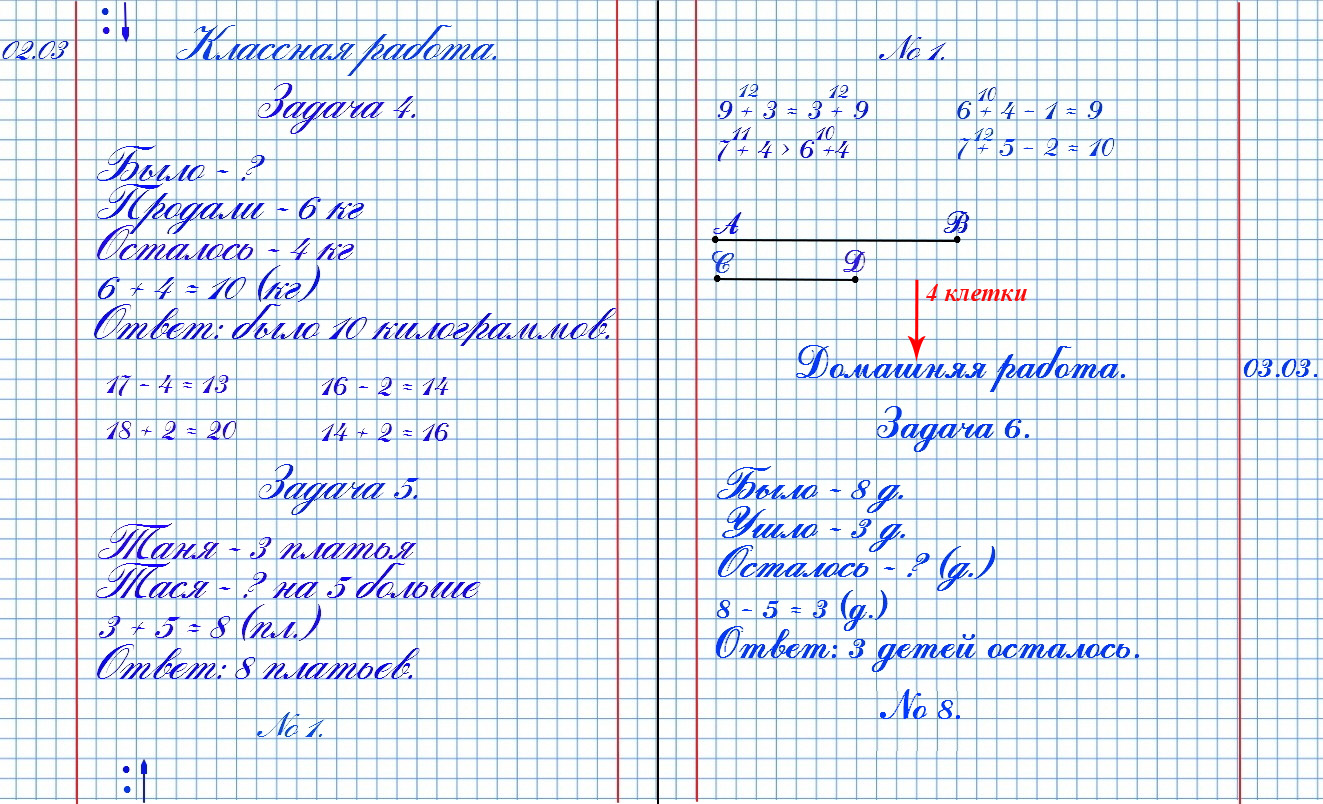 02.03
Классная работа.
Задача 4.
Было - ?
Продали - 6 кг
Осталось - 4 кг
6 + 4 = 10 (кг)
Ответ: было 10 килограммов.
17 - 4 = 13    16 - 2 = 14
18 + 2 = 20    14 + 2 = 16
Задача 5.
Таня - 3 платья
Тася - ? на 5 больше
3 + 5 = 8 (пл.)
Ответ: 8 платьев.
№ 1.
№ 1.
12    12    10
9 + 3 = 3 + 9    6 + 4 - 1 = 9
11    10    12
7 + 4 > 6 + 4    7 + 5 - 2 = 10
A    B
C    D
4 клетки
Домашняя работа.
03.03.
Задача 6.
Было - 8 д.
Ушло - 3 д.
Осталось - ? (д.)
8 - 5 = 3 (д.)
Ответ: 3 детей осталось.
№ 8.